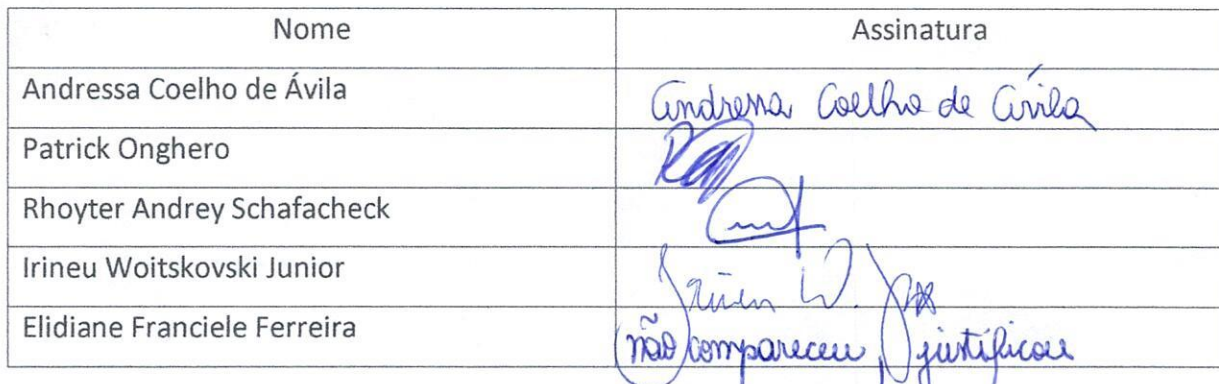 Nome Assinatura
Andressa Coelho de Ávila Andressa Coelho de Ávila
Patrick Onghero
Rhoyter Andrey Schafacheck
Irineu Woitskovski Junior Irineu W. Jr
Elidiane Franciele Ferreira não compareceu, justificou